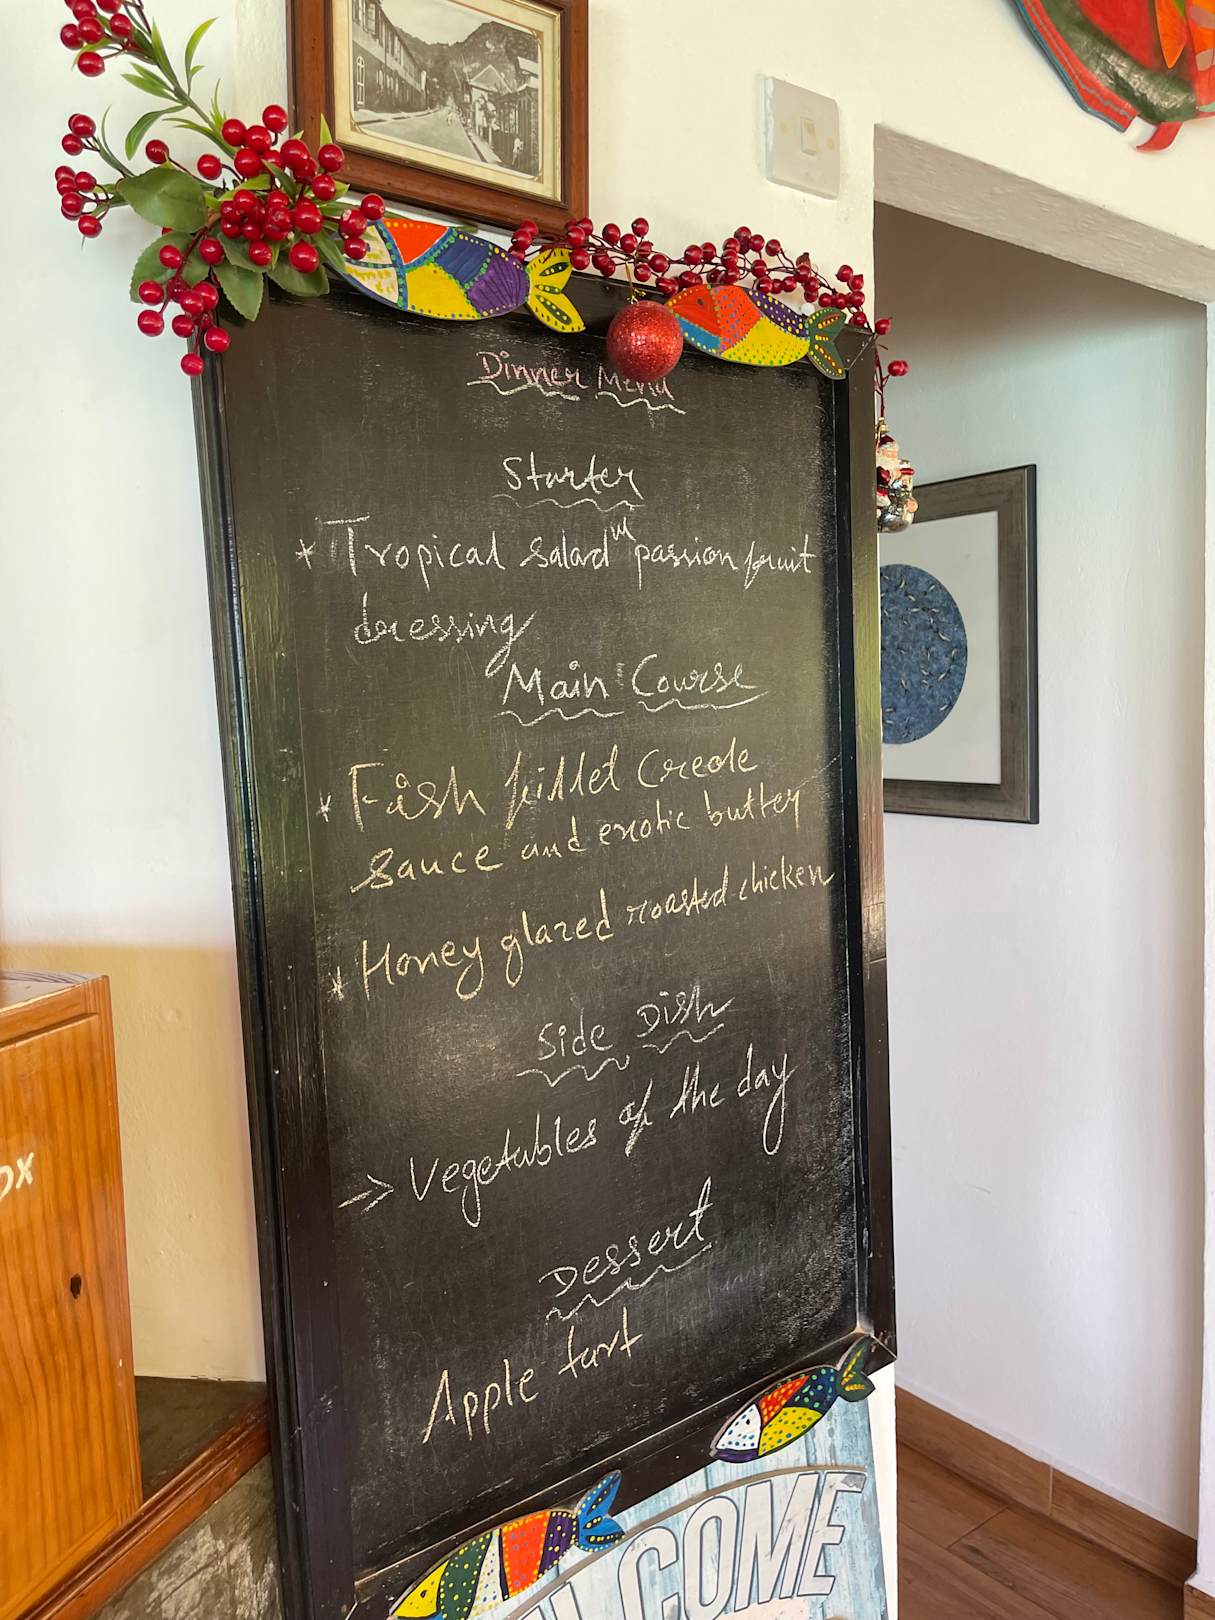 Dinner Menu
Starter
* Tropical salad w passion fruit
dressing
Main Course
* Fish fillet Creole
sauce and exotic butter
* Honey glazed roasted chicken
Side Dish
-> Vegetables of the day
Dessert
Apple tart
OX
COME